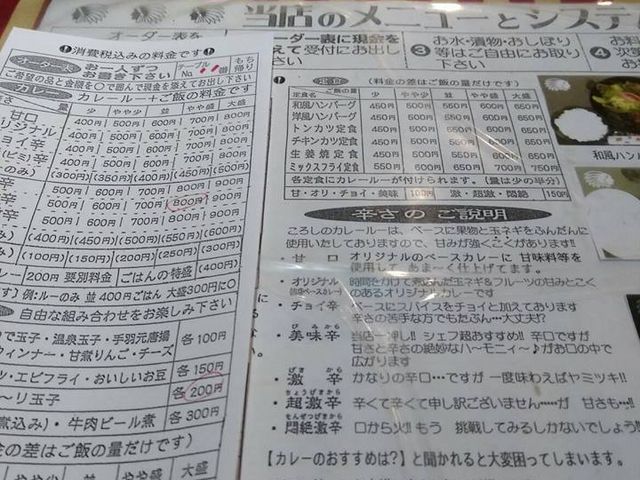 当店のメニューとシステ
ーダー表に現金を
えて受付にお出し
さい
③
お水・漬物・おしぼり
等はご自由にお取り
下さい
④
❗消費税込みの料金です❗
オーダー表
お一人ずつ
お書き下さい
テーブル
No.
番
もち
帰り
ご希望の品と金額を〇で囲んで現金を添えてお出し下さい
カレー
カレールー＋ご飯の料金です
量
少
やや少
並
やや盛
大盛
甘口
400円
500円
600円
700円
800円
リジナル
400円
500円
600円
700円
800円
チョイ辛
(300円)
(350円)
(400円)
(450円)
500円
600円
700円
800円
900円
500円
600円
700円
800円
900円
(400円)
(450円)
(500円)
(550円)
(600円)
(100円)
(150円)
(200円)
(250円)
(300円)
レー 200円 要別料金
ごはんの特盛
400円
例:ルーのみ 並 400円 ごはん 大盛300円に〇
自由な組み合わせをお楽しみ下さい
で玉子・温泉玉子・手羽元唐揚
ウィンナー・甘煮りんご・チーズ
各100円
ツ・エビフライ・おいしいお豆
各150円
〜リ玉子
各200円
煮込み)・牛肉ビール煮
各300円
金の差はご飯の量だけです)
やや少
並
やや盛
大盛
(料金の差はご飯の量だけです)
定食名
ご飯の量
少
やや少
並
やや盛
大盛
和風ハンバーグ
450円
500円
550円
600円
650円
洋風ハンバーグ
450円
500円
550円
600円
650円
トンカツ定食
450円
500円
550円
600円
650円
チキンカツ定食
450円
500円
550円
600円
650円
生姜焼定食
450円
500円
550円
600円
650円
ミックスフライ定食
550円
600円
650円
700円
750円
各定食にカレールーが付けられます。(量は少の半分)
甘・オリ・チョイ・美味
100円
激・超激・悶絶
150円
和風ハン
辛さの ご説明
ころしのカレールーは、ベースに果物と玉ネギをふんだんに
使用いたしておりますので、甘みが強くごくがあります!!
・甘口
オリジナルのベースカレーに 甘味料等を
使用して あま〜く仕上げてます。
・オリジナル
玉ネギ＆フルーツの甘みとこく
のあるオリジナルカレーです
・チョイ辛
ベースにスパイスをチョイと加えております
辛さの苦手な方でもたぶん…大丈夫!?
びみから
・美味辛
当店一押し!! シェフ超おすすめ!! 辛口ですが
甘さと辛さの絶妙なハ〜モニィ〜♪がお口の中で
広がります
げきから
・激辛
かなりの辛口…ですが 一度味わえばヤミツキ!!
ちょうげきから
・超激辛
辛くて辛くて申し訳ございません……が 甘さも…!!
もんぜつげきから
・悶絶激辛
口から火!! もう 挑戦してみるしかないでしょう!!
【カレーのおすすめは?】と聞かれると大変困ってしまいます。